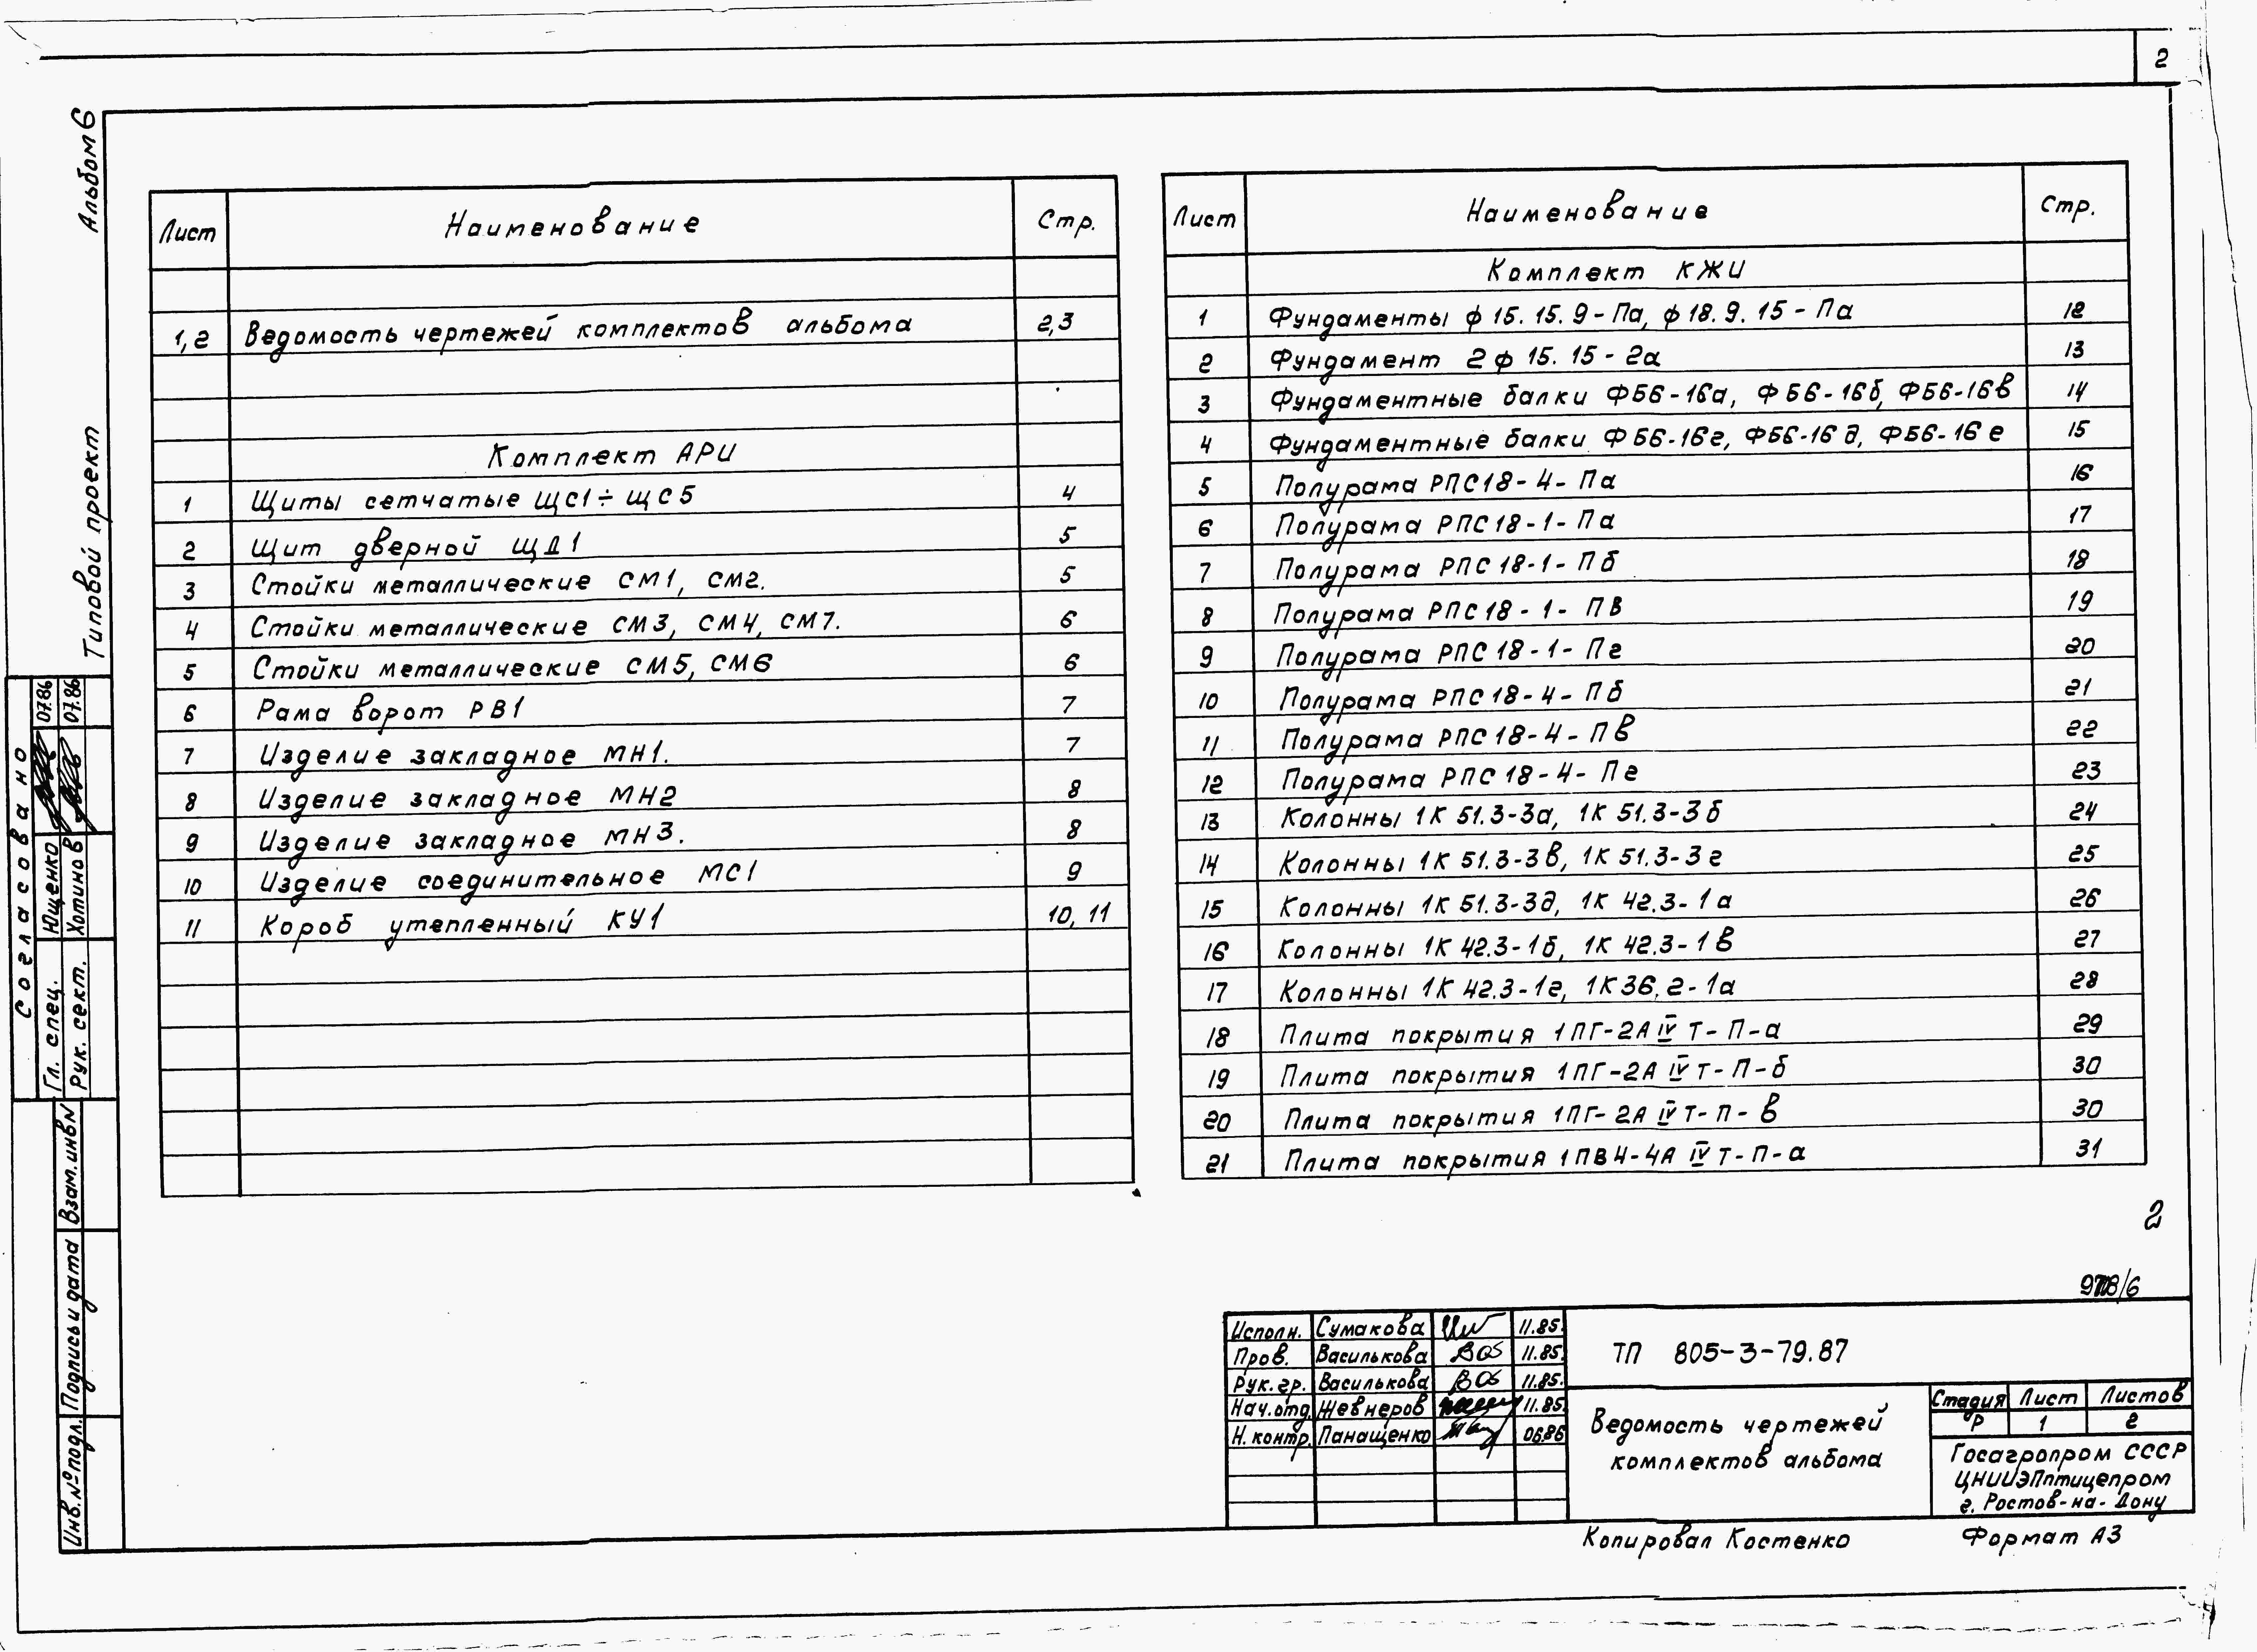 2
Альбом 6
Типовой проект
Лист Наименование Стр.
1,2 Ведомость чертежей комплектов альбома 2,3
Комплект АРИ
1 Щиты сетчатые ЩС1÷ЩС5 4
2 Щит дверной ЩД1 5
3 Стойки металлические СМ1, СМ2. 5
4 Стойки металлические СМ3, СМ4, СМ7. 6
5 Стойки металлические СМ5, СМ6 6
6 Рама ворот РВ1 7
7 Изделие закладное МН1. 7
8 Изделие закладное МН2 8
9 Изделие закладное МН3. 8
10 Изделие соединительное МС1 9
11 Короб утепленный КУ1 10, 11
Лист Наименование Стр.
Комплект КЖИ
1 Фундаменты ф 15.15.9-Па, ф 18.9.15-Па 12
2 Фундамент 2ф 15.15-2а 13
3 Фундаментные балки ФБ6-16а, ФБ6-16б, ФБ6-16в 14
4 Фундаментные балки ФБ6-16г, ФБ6-16д, ФБ6-16е 15
5 Полурама РПС18-4-Па 16
6 Полурама РПС18-1-Па 17
7 Полурама РПС18-1-Пб 18
8 Полурама РПС18-1-Пв 19
9 Полурама РПС18-1-Пг 20
10 Полурама РПС18-4-Пб 21
11 Полурама РПС18-4-Пв 22
12 Полурама РПС18-4-Пг 23
13 Колонны 1К 51.3-3а, 1К 51.3-3б 24
14 Колонны 1К 51.3-3в, 1К 51.3-3г 25
15 Колонны 1К 51.3-3д, 1К 42.3-1а 26
16 Колонны 1К 42.3-1б, 1К 42.3-1в 27
17 Колонны 1К 42.3-1г, 1К 36.2-1а 28
18 Плита покрытия 1ПГ-2А IV Т-П-а 29
19 Плита покрытия 1ПГ-2А IV Т-П-б 30
20 Плита покрытия 1ПГ-2А IV Т-П-в 30
21 Плита покрытия 1ПВ4-4А IV Т-П-а 31
Согласовано
Гл. спец. Ющенко 07.86
Рук. сект. Хотинов 07.86
Взам. инв N
Подпись и дата
Инв. № подл.
2
Исполн. Сумакова 11.85.
Пров. Василькова 11.85.
Рук. гр. Василькова 11.85.
Нач. отд. Жевнеров 11.85.
Н. контр. Панащенко 06.86
ТП 805-3-79.87
Ведомость чертежей
комплектов альбома
Стадия Лист Листов
Р 1 2
Госагропром СССР
ЦНИИЭПптицепром
г. Ростов-на-Дону
Копировал Костенко Формат А3